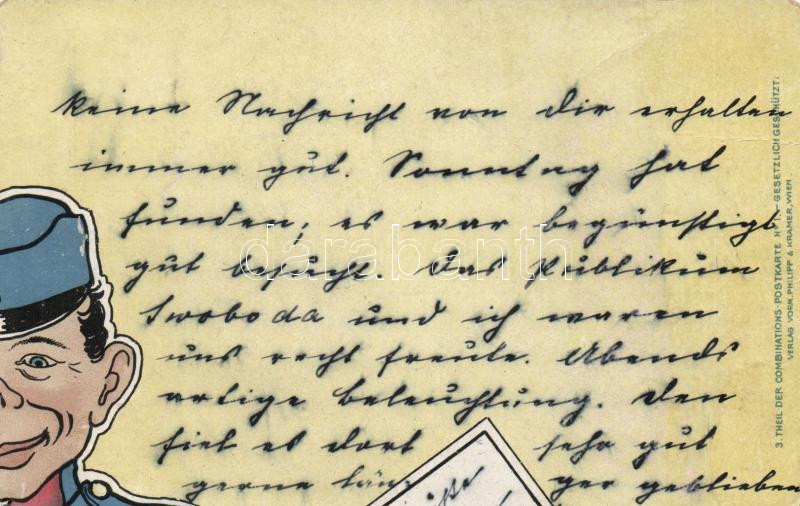 keine Nachricht von dir erhalten
immer gut. Sonntag hat
funden; es war begünstigt
gut besucht. Das Publikum
Swoboda und ich waren
uns recht freute. Abends
artige Beleuchtung. Den
fiel es dort sehr gut
gerne läng ger geblieben
3. THEIL DER COMBINATIONS-POSTKARTE No 1.- GESETZLICH GESCHÜTZT.
VERLAG VORM. PHILIPP & KRAMER, WIEN
darabanth